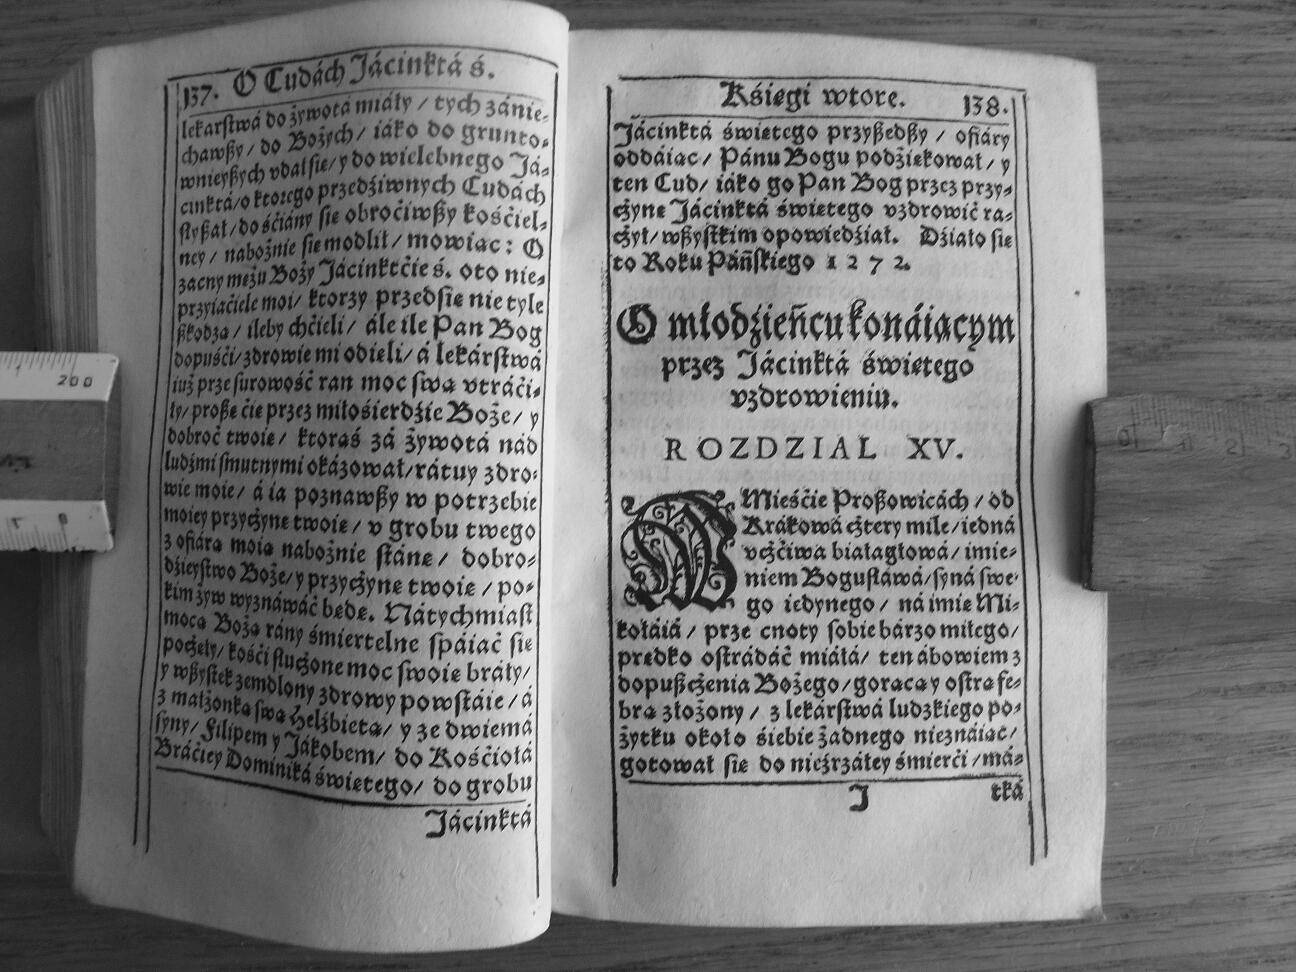 137. O Cudách Jácinktá ś.
lekarſtwá do żywotá miáły / tych zánie-
chawßy / do Bożych / iáko do grunto-
wnieyßych vdał ſie / y do wielebnego Já-
cinktá / o ktorego przedźiwnych Cudách
ſłyßał / do śćiány ſie obroćiwßy kośćiel-
ney / nabożnie ſie modlił / mowiac: O
zacny mężu Boży Jácinktćie ś. oto nie-
przyiaćiele moi / ktorzy przedſię nie tyle
ßkodzą / ileby chćieli / ále ile Pan Bog
dopuśći / zdrowie mi odieli / á lekárſtwá
iuż prze ſurowość ran moc ſwą vtráći-
ły / proßę ćie przez miłośierdźie Boże / y
dobroć twoię / ktoraś zá żywotá nád
ludźmi ſmutnymi okázował / rátuy zdro-
wie moie / á ia poznawßy w potrzebie
moiey przyczynę twoię / v grobu twego
z ofiárą moią nabożnie ſtánę / dobro-
dźieyſtwo Boże / y przyczynę twoię / po-
kim żyw wyznáwáć będę. Nátychmiaſt
mocą Bożą rány śmiertelne ſpáiáć ſie
poczęły / kośći ſłuczone moc ſwoię bráły /
y wßyſtek zemdlony zdrowy powſtáie / á
z małżonką ſwą Helżbietą / y ze dwiemá
ſyny / Filipem y Jákobem / do Kośćiołá
Bráćiey Dominiká świętego / do grobu
Jácinktá
Kśięgi wtore. 138.
Jácinktá świętego przyßedßy / ofiáry
oddáiąc / Pánu Bogu podźiękował / y
ten Cud / iáko go Pan Bog przez przy-
czynę Jácinktá świętego vzdrowić ra-
czył / wßyſtkim opowiedźiał. Dźiało ſie
to Roku Páńſkiego 1 2 7 2.
O młodźieńcu konáiącym
przez Jácinktá świętego
vzdrowieniu.
ROZDZIAL XV.
W Mieśćie Proßowicách / od
Krákowá cztery mile / iedná
vczćiwa białagłowá / imie-
niem Bogusławá / ſyná ſwe-
go iedynego / ná imię Mi-
kołáiá / prze cnoty ſobie bárzo miłego /
prędko oſtrádáć miáłá / ten ábowiem z
dopußczenia Bożego / gorącą y oſtrą fe-
brą złożony / z lekárſtwá ludzkiego po-
żytku około śiebie żadnego nieznáiąc /
gotował ſie do nieźrzáłey śmierći / má-
J tká